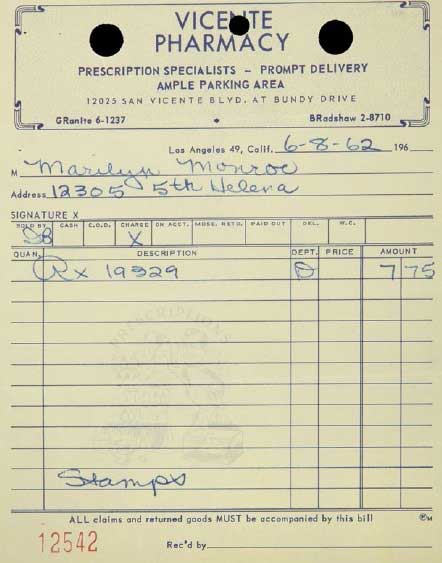 VICENTE
PHARMACY
PRESCRIPTION SPECIALISTS – PROMPT DELIVERY
AMPLE PARKING AREA
12025 SAN VICENTE BLVD. AT BUNDY DRIVE
GRanite 6-1237 BRadshaw 2-8710
Los Angeles 49, Calif. 6-8-62 196
M Marilyn Monroe
Address 12305 5th Helena
SIGNATURE X
SOLD BY CASH C.O.D. CHARGE ON ACCT. MDSE. RETD. PAID OUT DEL. W.C.
X
QUAN. DESCRIPTION DEPT. PRICE AMOUNT
Rx 19329 7 75
PRESCRIPTIONS
Stamps
ALL claims and returned goods MUST be accompanied by this bill
12542 Rec'd by